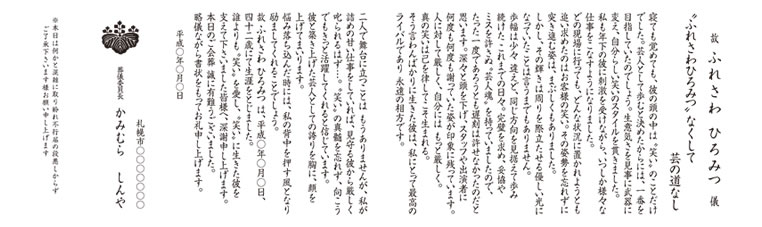 故 ふれさわ ひろみつ 儀
“ふれさわひろみつ”なくして
芸の道なし
寝ても覚めても、彼の頭の中は“笑い”のことだけ
でした。芸人として歩むと決めたからには、一番を
目指していたのでしょう。生意気さを見事に武器に
変え、自分らしい笑いのスタイルを貫きました。
私も年下の彼に刺激を受けながら、いつしか様々な
仕事をこなすようになりました。
どの現場に行っても、どんな状況に置かれようとも
追い求めたのはお客様の笑い。その姿勢を忘れずに
突き進む姿は、まぶしくもありました。
しかし、その輝きは周りを際立たせる優しい光に
なっていたことは言うまでもありません。
歩幅は少々違えど、同じ方向を見据えて歩み
続けたこれまでの日々。完璧を求め、妥協や
ミスを許さぬ“芸人魂”を持っていましたので、
たった一度であろうとも遅刻が許せなかったのだと
思います。深々と頭を下げ、スタッフや出演者に
何度も何度も謝っていた姿が印象に残っています。
人に対して厳しく、自分にはもっと厳しく。
真の笑いは己を律してこそ生まれる。
そう言わんばかりに生きた彼は、私にとって最高の
ライバルであり 永遠の相方です。
二人で舞台に立つことは もうありませんが、私が
詰めの甘い仕事をしていれば、見守る彼から厳しく
叱られるはず…。“笑い”の真髄を忘れず、向こう
でもきっと活躍してくれると信じています。
彼と築き上げた芸人としての誇りを胸に、顔を
上げてまいります。
悩み落ち込んだ時には、私の背中を押す風となり
励ましてくれることでしょう。
故・ふれさわ ひろみつは、平成〇年〇月〇日、
四十二歳にて生涯をとじました。
誰よりも“笑い”を愛し、“笑い”に生きた彼を
支えて下さった皆様へ、深謝申し上げます。
本日のご会葬 誠に有難うございました。
略儀ながら書状をもってお礼申し上げます
平成〇年〇月〇日
札幌市〇〇〇〇〇〇
葬儀委員長 かみむら しんや
※本日は何かと混雑に取り紛れ不行届の段悪しからず
ご了承下さいます様お願い申し上げます